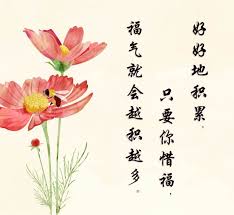 好好地积累，
只要你惜福，
福气就会越积越多。